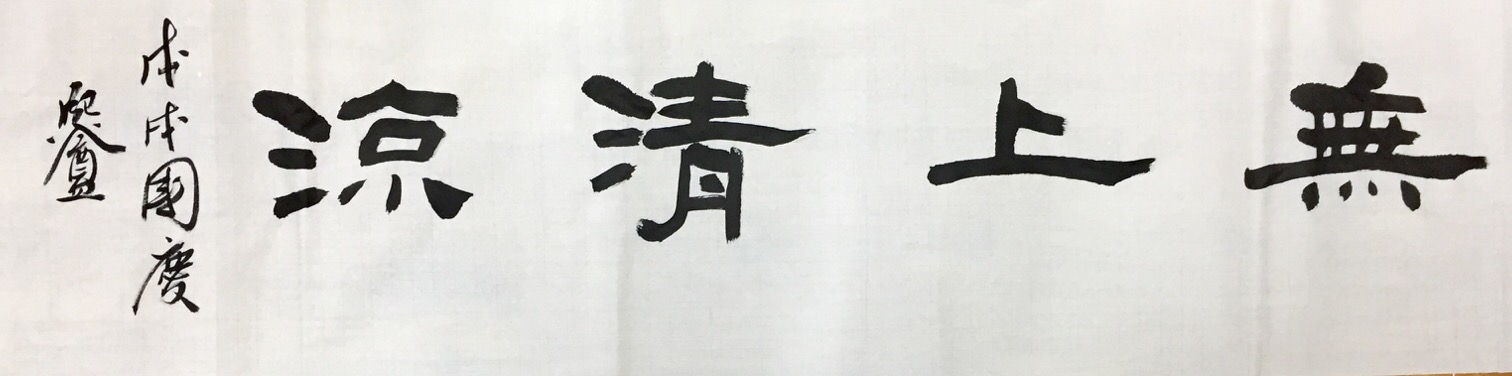 無上清涼
戊戌國慶
熙盦